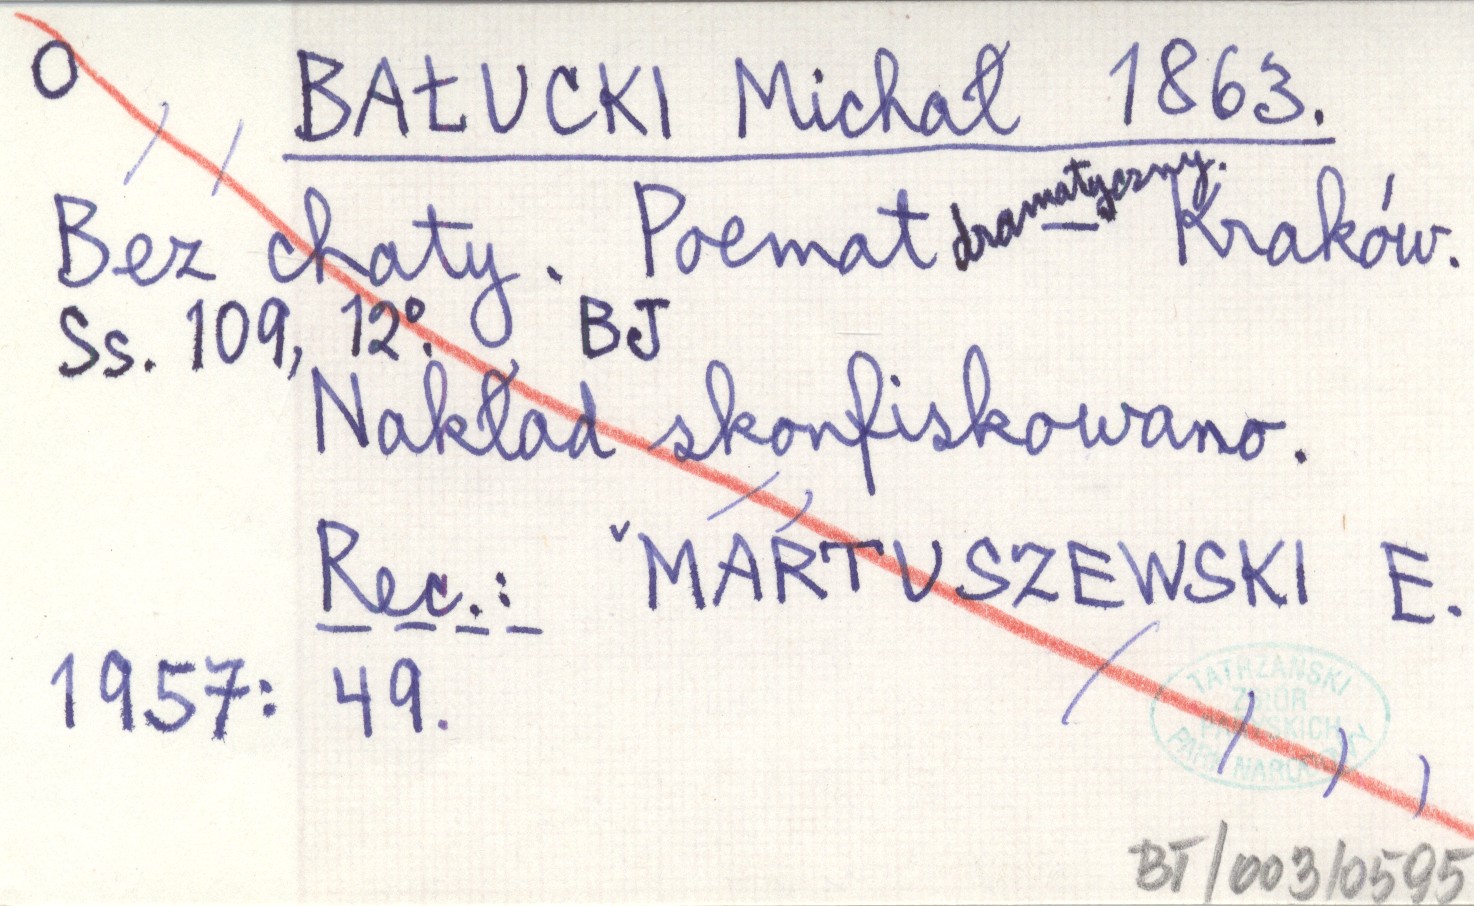 O
BAŁUCKI Michał 1863.
Bez chaty. Poemat dramatyczny. – Kraków.
Ss. 109, 12°. BJ
Nakład skonfiskowano.
Rec.: ˇMARTUSZEWSKI E.
1957: 49.
TATRZAŃSKI
ZBIÓR
PARYSKICH
PARK NARODOWY
BT/003/0595